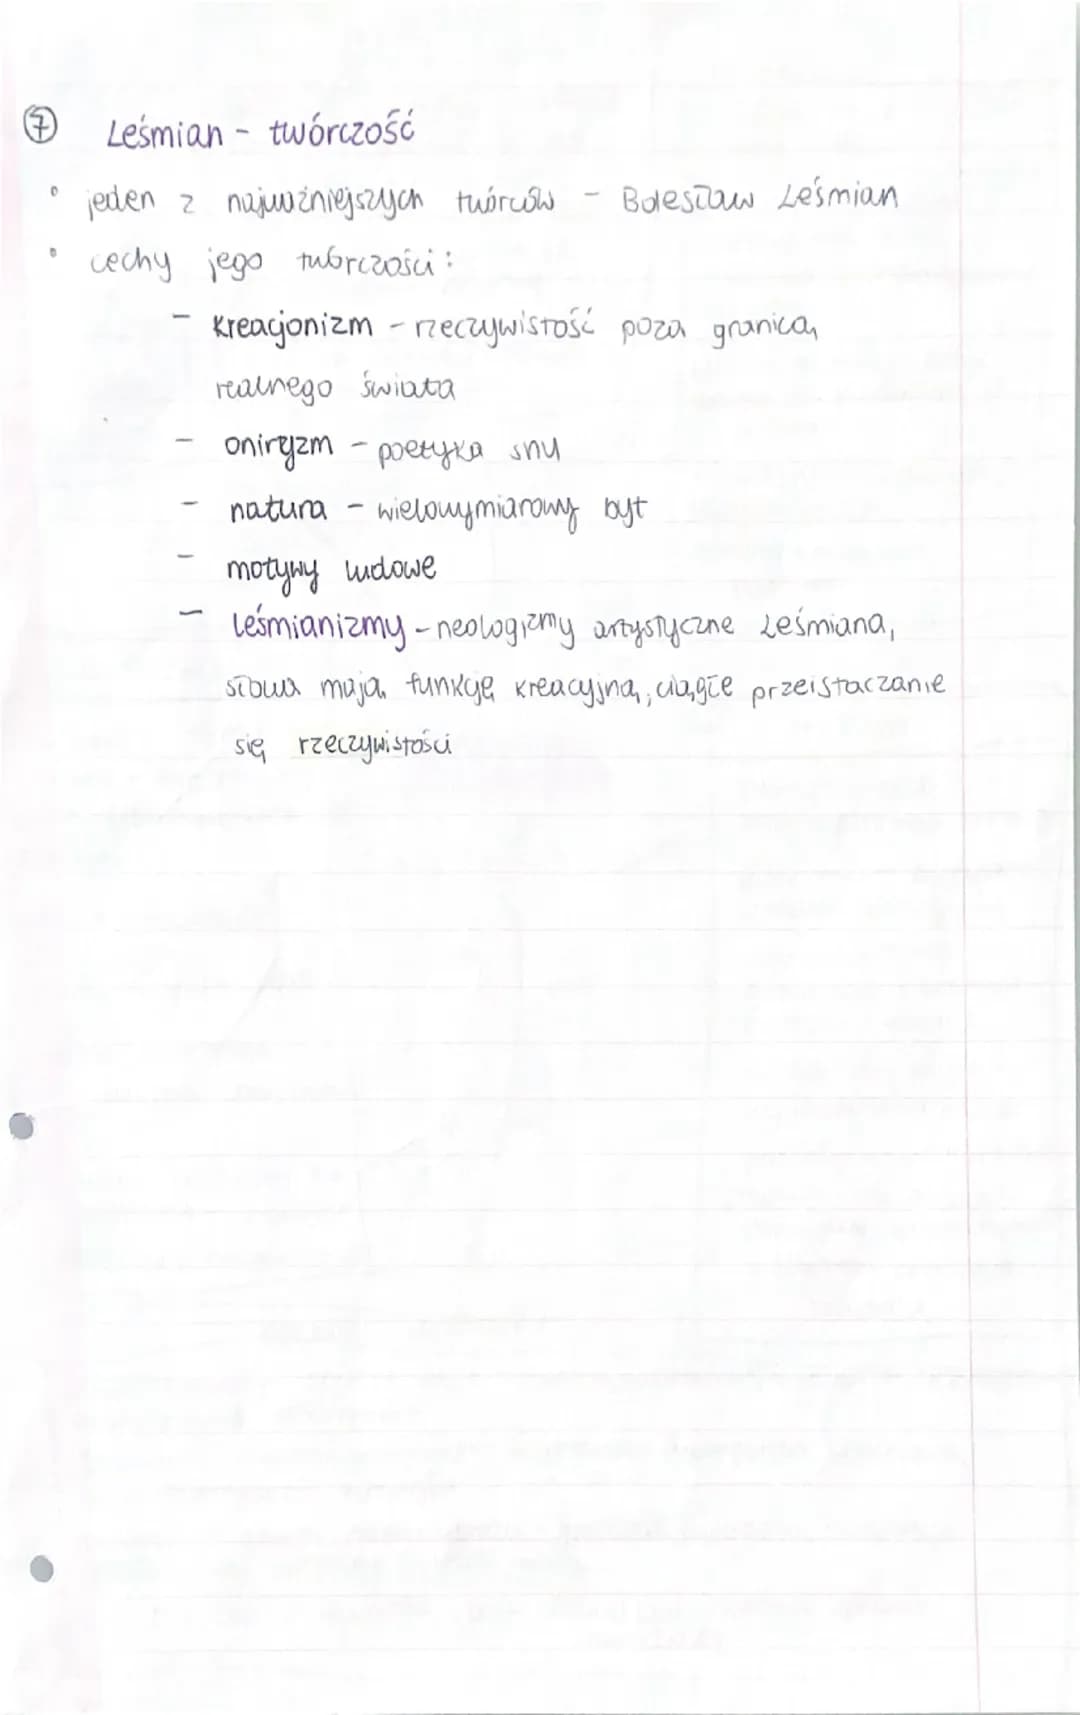 ⑦ Leśmian - twórczość
° jeden z najważniejszych twórców - Bolesław Leśmian
° cechy jego twórczości:
- kreacjonizm - rzeczywistość poza granicą
realnego świata
- oniryzm - poetyka snu
- natura - wielowymiarowy byt
- motywy ludowe
- leśmianizmy - neologizmy artystyczne Leśmiana,
słowa mają funkcję kreacyjną, ciągłe przeistaczanie
się rzeczywistości